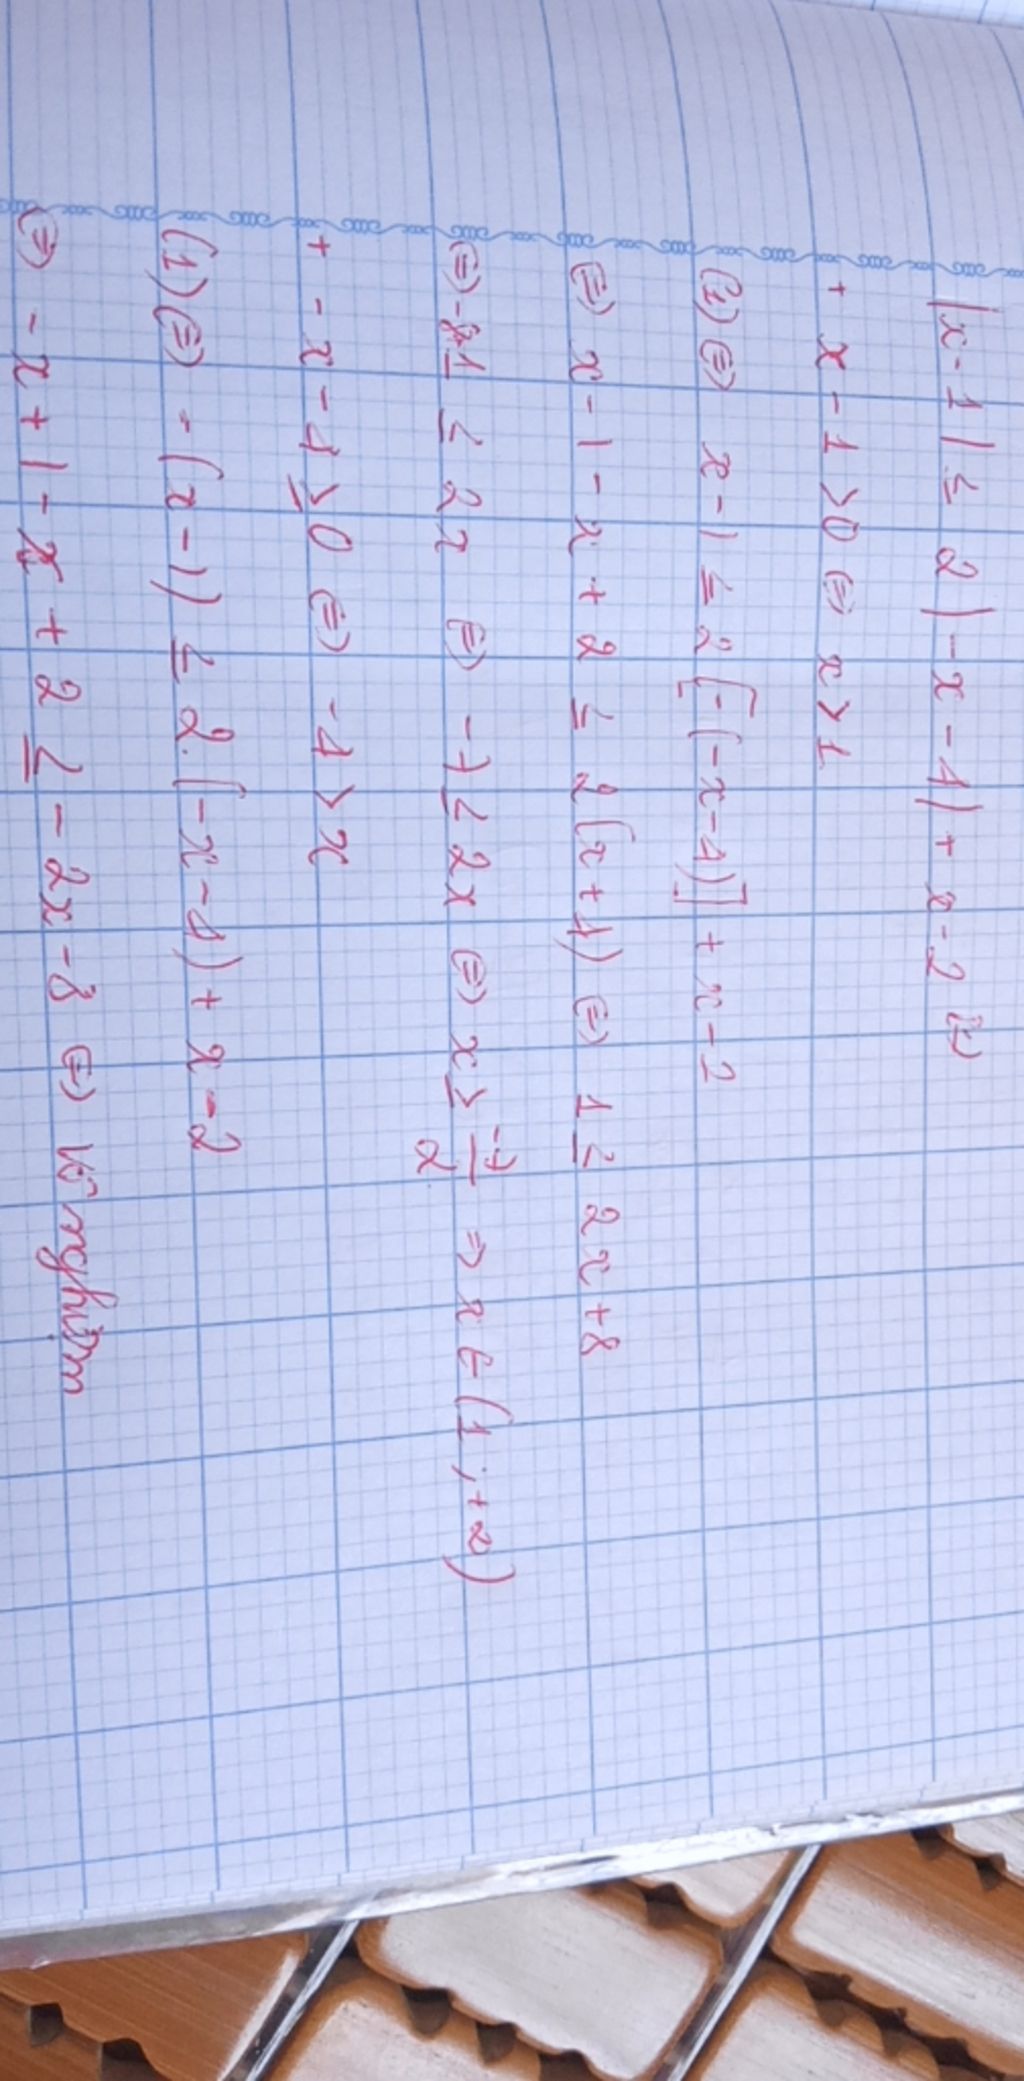 |x-1| ≤ 2|-x-4| + x-2 (1)
+ x-1 > 0 (=) x > 1
(1) (=) x-1 ≤ 2[-(-x-4)] + x-2
(=) x-1-x+2 ≤ 2(x+4) (=) 1 ≤ 2x+8
(=) -8+1 ≤ 2x (=) -7 ≤ 2x (=) x ≥ -7/2 => x ∈ (1; +∞)
+ -x-4 ≥ 0 (=) -4 > x
(1) (=) -(x-1) ≤ 2.(-x-4) + x-2
(=) -x+1-x+2 ≤ -2x-8 (=) Vô nghiệm